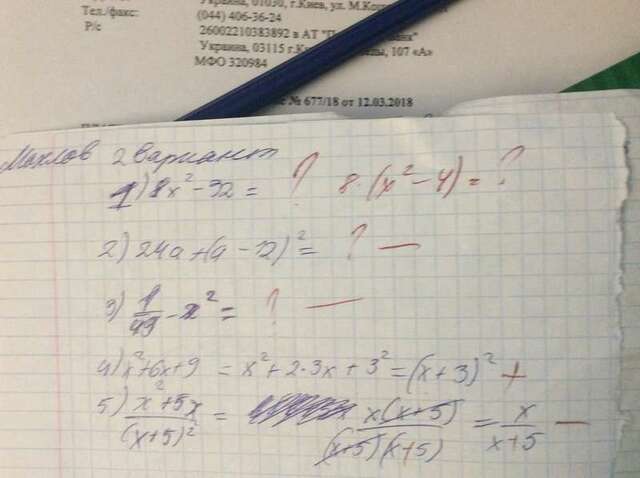 Україна, 01030, г.Киев, ул. М.Коц
Тел./факс: (044) 406-36-24
Р/с 26002210383892 в АТ "П
Украина, 03115 г.К 107 «А»
МФО 320984
№ 677/18 от 12.03.2018
Махлов 2 вариант
1) 8x² - 32 = ? 8·(x² - 4) = ?
2) 24a + (a - 12)² = ? —
3) 1/49 - x² = ? —
4) x² + 6x + 9 = x² + 2·3x + 3² = (x + 3)² +
5) x² + 5x / (x + 5)² = x(x + 5) / (x + 5)(x + 5) = x / x + 5 —